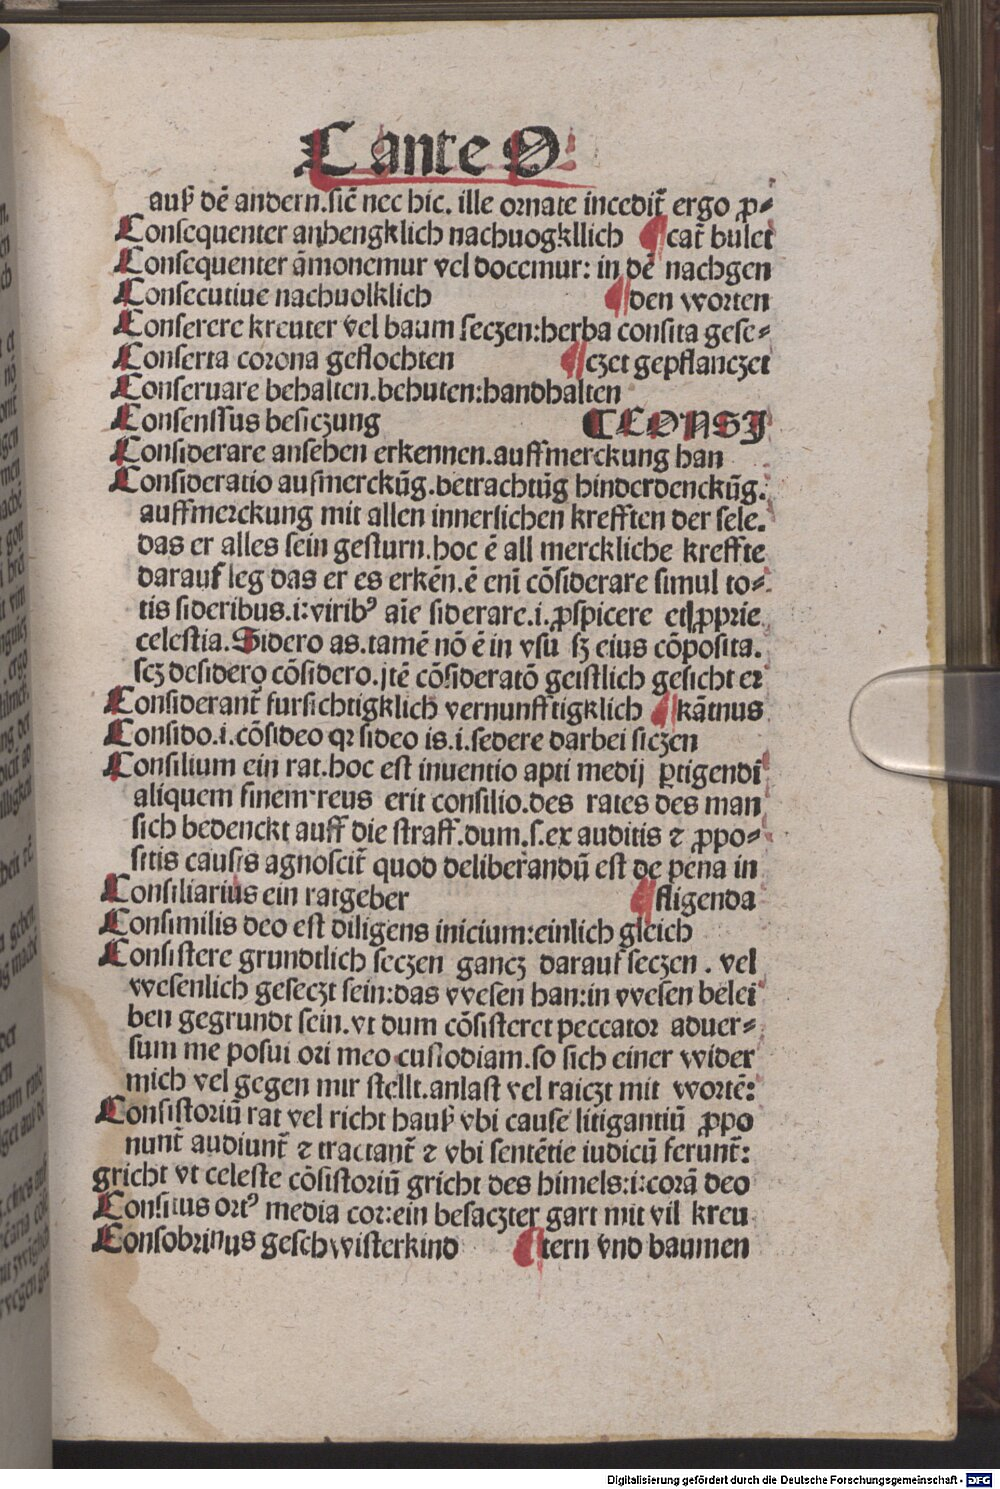 C ante O
auß dē andern.sic̄ nec hic. ille ornate incedit̄ ergo p̱⸗
Consequenter anhengklich nachuogkllich ¶cat̄ bulet
Consequenter āmonemur vel docemur: in dē nachgen
Consecutiue nachuolklich ¶den worten
Conserere kreuter vel baum seczen:herba consita gese⸗
Conserta corona geflochten ¶czet gepflanczet
Conseruare behalten.behuten:handhalten
Consenssus besiczung C EONSI
Considerare ansehen erkennen.auffmerckung han
Consideratio aufmerckūg.betrachtūg hinderdenckūg.
auffmerckung mit allen innerlichen krefften der sele.
das er alles sein gesturn.hoc ē all merckliche kreffte
darauf leg das er es erkēn.ē enī cōsiderare simul to⸗
tis sideribus.i:viribꝰ aīe siderare.i.ꝓspicere et ꝓprie
celestia.Sidero as.tamē nō ē in vsu sꝫ eius cōposita.
scꝫ desidero cōsidero.jtē cōsideratō geistlich gesicht er
Considerant̄ fursichtigklich vernunfftigklich ¶kātnus
Consido.i.cōsideo qꝛ sideo is.i.sedere darbei siczen
Consilium ein rat.hoc est inuentio apti medij ꝑtigendī
aliquem finem reus erit consilio.des rates des man
sich bedenckt auff die straff.dum.s.ex auditis ⁊ ꝓpo⸗
sitis causis agnoscit̄ quod deliberandū est de pena in
Consiliarius ein ratgeber ¶fligenda
Consimilis deo est diligens inicium:einlich gleich
Consistere grundtlich seczen gancz darauf seczen . vel
wesenlich geseczt sein:das wesen han:in wesen belei
ben gegrundt sein.vt dum cōsisteret peccator aduer⸗
sum me posui ori meo custodiam.so sich einer wider
mich vel gegen mir stellt.anlast vel raiczt mit wortē:
Consistoriū rat vel richt hauß vbi cause litigantiū ꝓpo
nunt̄ audiunt̄ ⁊ tractant̄ ⁊ vbi sentētie iudicū ferunt̄:
gricht vt celeste cōsistoriū gricht des himels:i:corā deo
Consitus ortꝰ media cor:ein besaczter gart mit vil kreu
Consobrinus geschwisterkind ¶tern vnd baumen
Digitalisierung gefördert durch die Deutsche Forschungsgemeinschaft - DFG